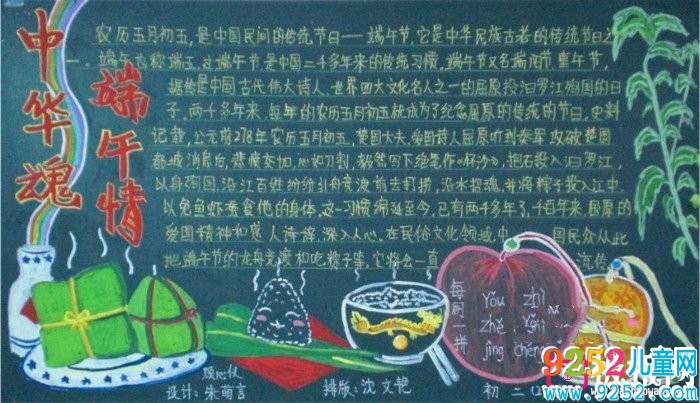 中华魂
端午情
农历五月初五,是中国民间的传统节日——端午节,它是中华民族古老的传统节日之
一。端午也称端五,过端午节,是中国二千多年来的传统习惯,端午节又名端阳节、重午节,
据传是中国古代伟大诗人、世界四大文化名人之一的屈原投汨罗江殉国的日
子,两千多年来,每年的农历五月初五就成为了纪念屈原的传统的节日,史料
记载,公元前278年农历五月初五,楚国大夫、爱国诗人屈原听到秦军攻破楚国
都城消息后,悲愤交加,心如刀割,毅然写下绝笔作《怀沙》,抱石投入汨罗江,
以身殉国,沿江百姓纷纷引舟竞渡前去打捞,沿水招魂,并将粽子投入江中,
以免鱼虾蚕食他的身体,这一习俗绵延至今,已有两千多年了,千百年来,屈原的
爱国精神和感人诗辞,深入人心,在民俗文化领域中 国民众从此
把端午节的龙舟竞渡和吃粽子等,它将会一直 流传
每期一拼
yǒu zhì
zhě
jìng chéng
设计:朱萌言
排版:沈文艳
初二
9252儿童网
www.9252.com